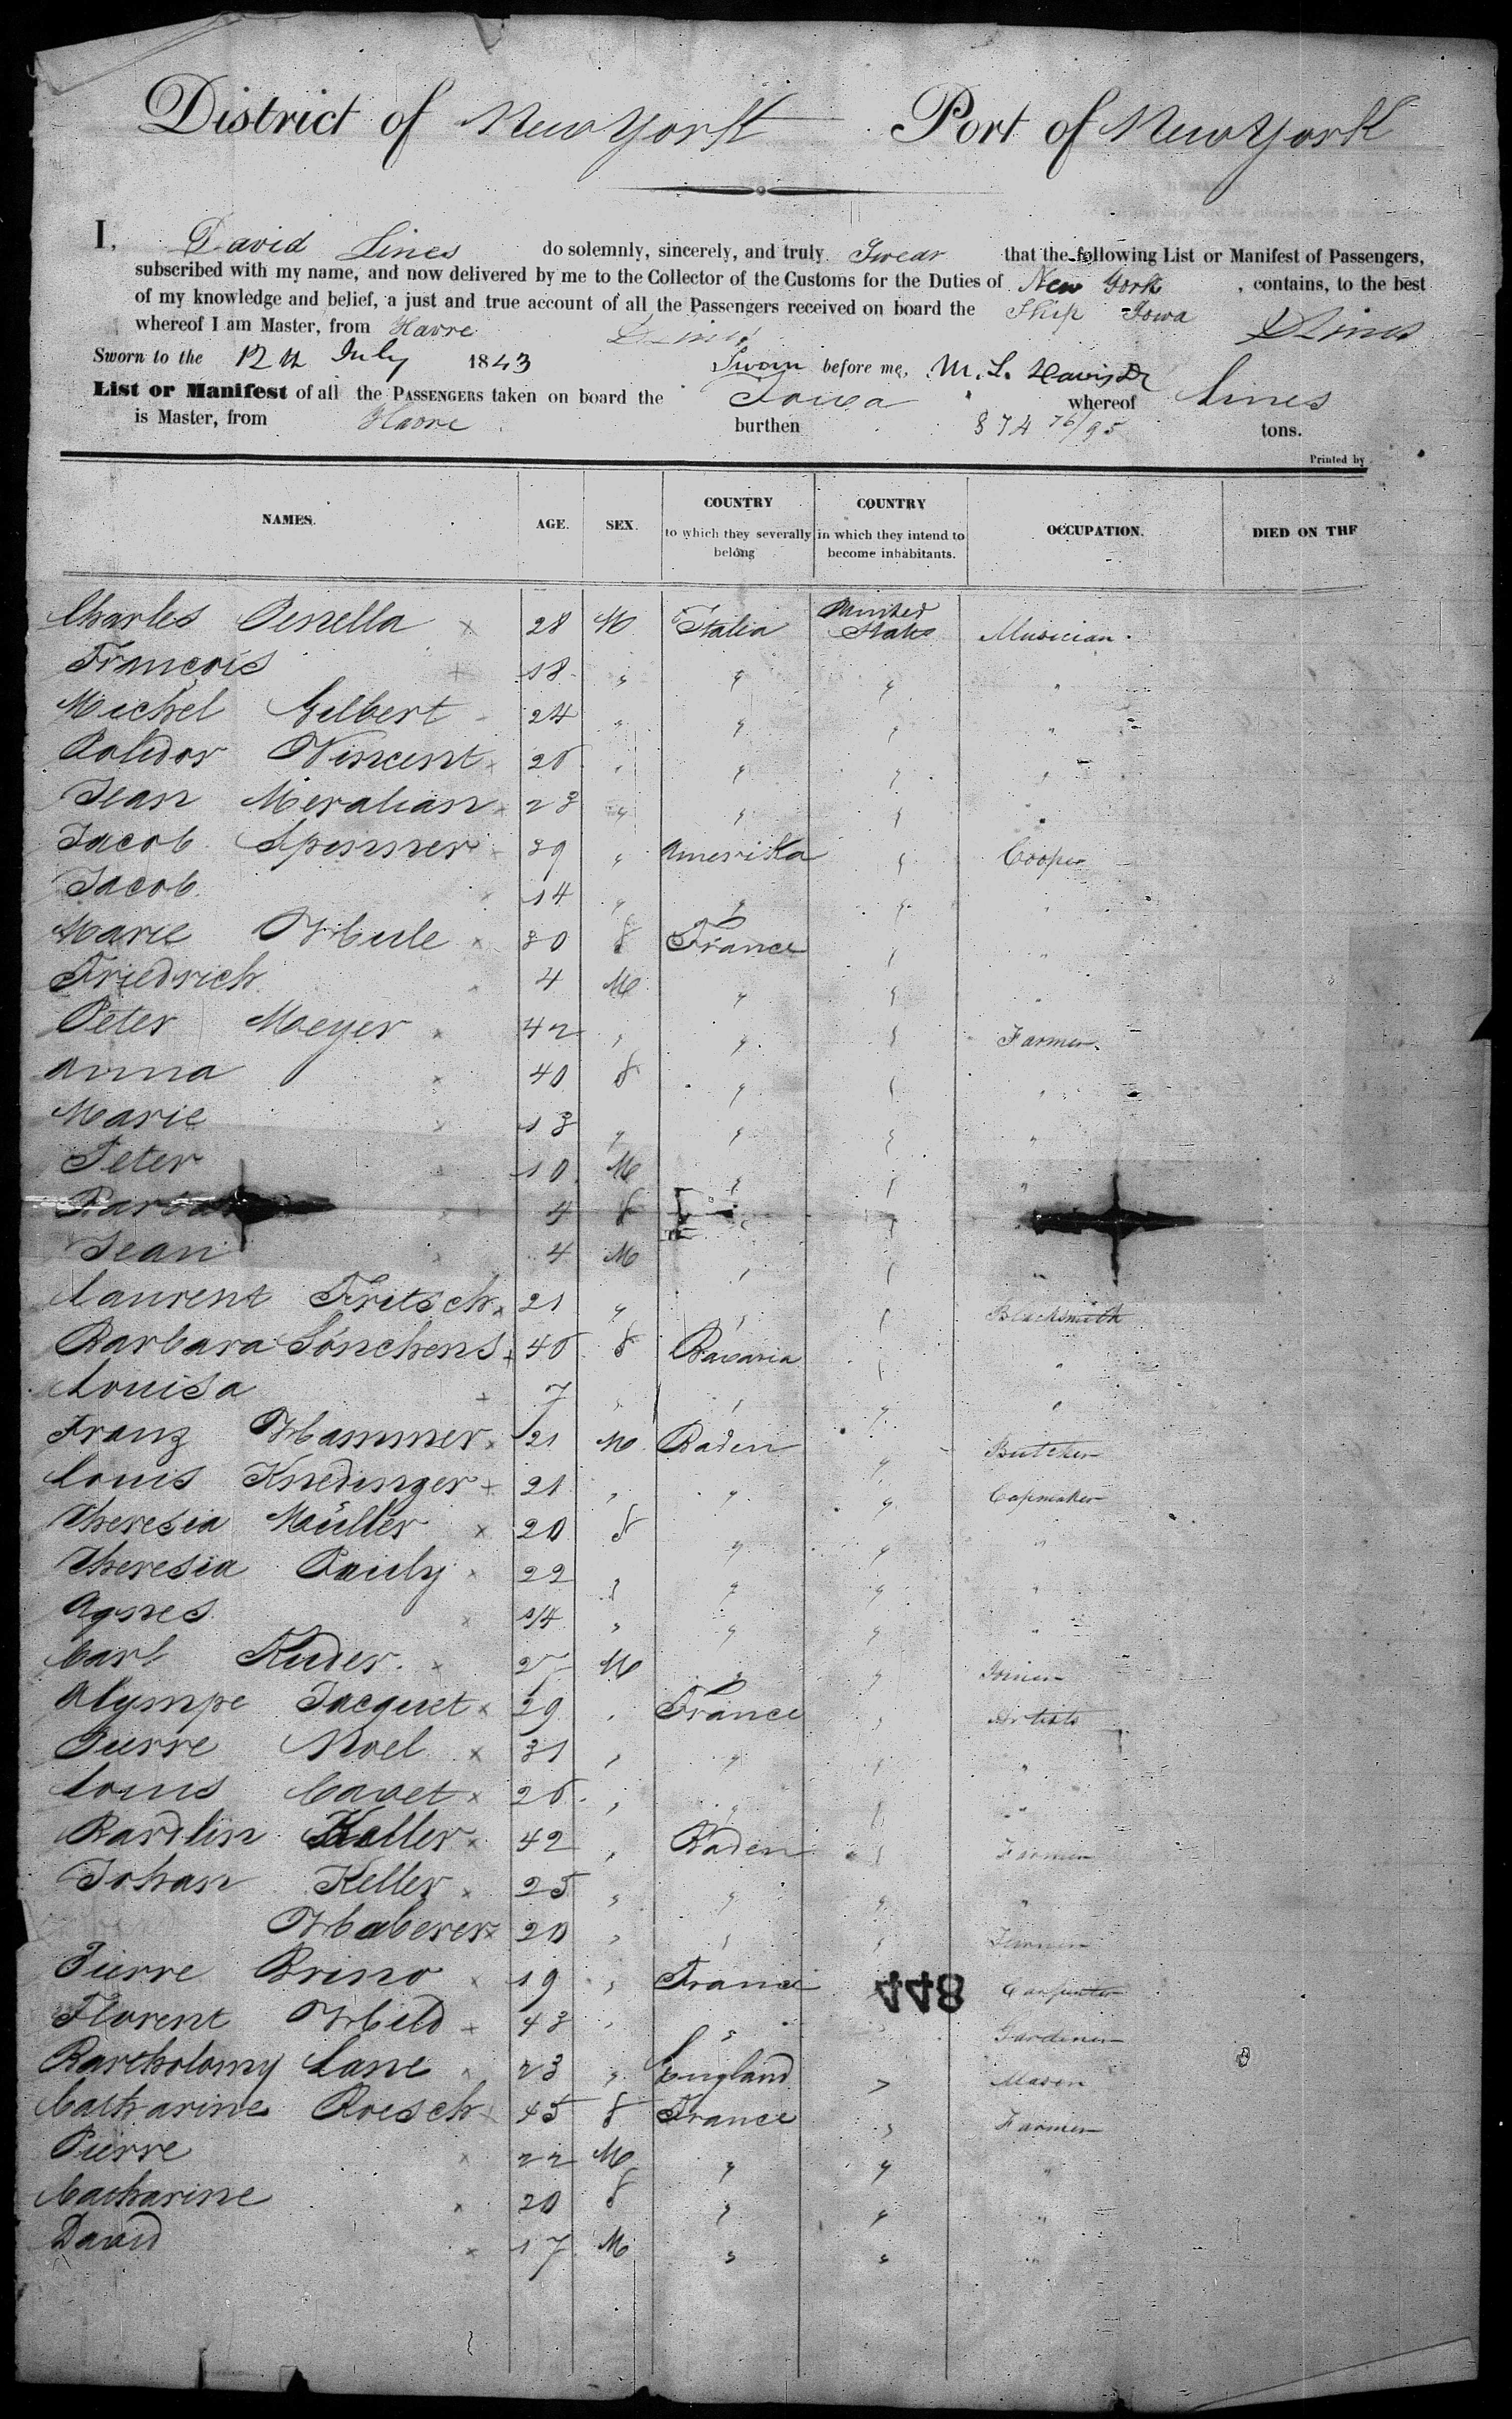 District of New York Port of New York
I, David Lines do solemnly, sincerely, and truly Swear that the following List or Manifest of Passengers,
subscribed with my name, and now delivered by me to the Collector of the Customs for the Duties of New York , contains, to the best
of my knowledge and belief, a just and true account of all the Passengers received on board the Ship Iowa
whereof I am Master, from Havre D Lines
Sworn to the 12 th July 1843 Sworn before me, M. L. Davis
List or Manifest of all the PASSENGERS taken on board the Iowa whereof Lines
is Master, from Havre burthen 874 76/95 tons.
Printed by
NAMES. AGE. SEX. COUNTRY to which they severally belong COUNTRY in which they intend to become inhabitants. OCCUPATION. DIED ON THE
Charles Penella x 28 M Italia United States Musician.
François + 18 " " " "
Michel Gilbert 24 " " " "
Polidor Vincent x 26 " " " "
Jean Meralian x 23 " " " "
Jacob Spinner 39 " Amerika " Cooper
Jacob x 14 " " " "
Marie Heile x 30 f France " "
Friedrich 4 M " " "
Peter Meyer x 42 " " " Farmer
Anna x 40 f " " "
Marie x 13 " " " "
Peter 10 M " " "
4 f " "
Jean 4 M " " "
Laurent Fritsch x 21 " " " Blacksmith
Barbara x 46 f Bavaria " "
Louisa + 7 " " " "
Franz Hammer x 21 M Baden " Butcher
Louis Knedinger + 21 " " " Capmaker
Theresia Müller x 20 f " " "
Theresia Pauly x 22 " " " "
Agnes x " " " "
Carl Kuder x M " " Joiner
Olympe Jacquet x 29 " France " Artists
Pierre Noel x 31 " " " "
Louis Cavet x 26 " " " "
Bardlin Keller x 42 " Baden " Farmer
Johan Keller x 25 " " " "
Haberer x 20 " " "
Pierre Brino x 19 " France " Carpenter
448
Florent Hild x 43 " " " Gardener
Bartholomy Lane x 23 " England " Mason
Catharine Roesch x 45 f France " Farmer
Pierre x 22 M " " "
Catharine x 20 f " " "
David x 17 M " " "